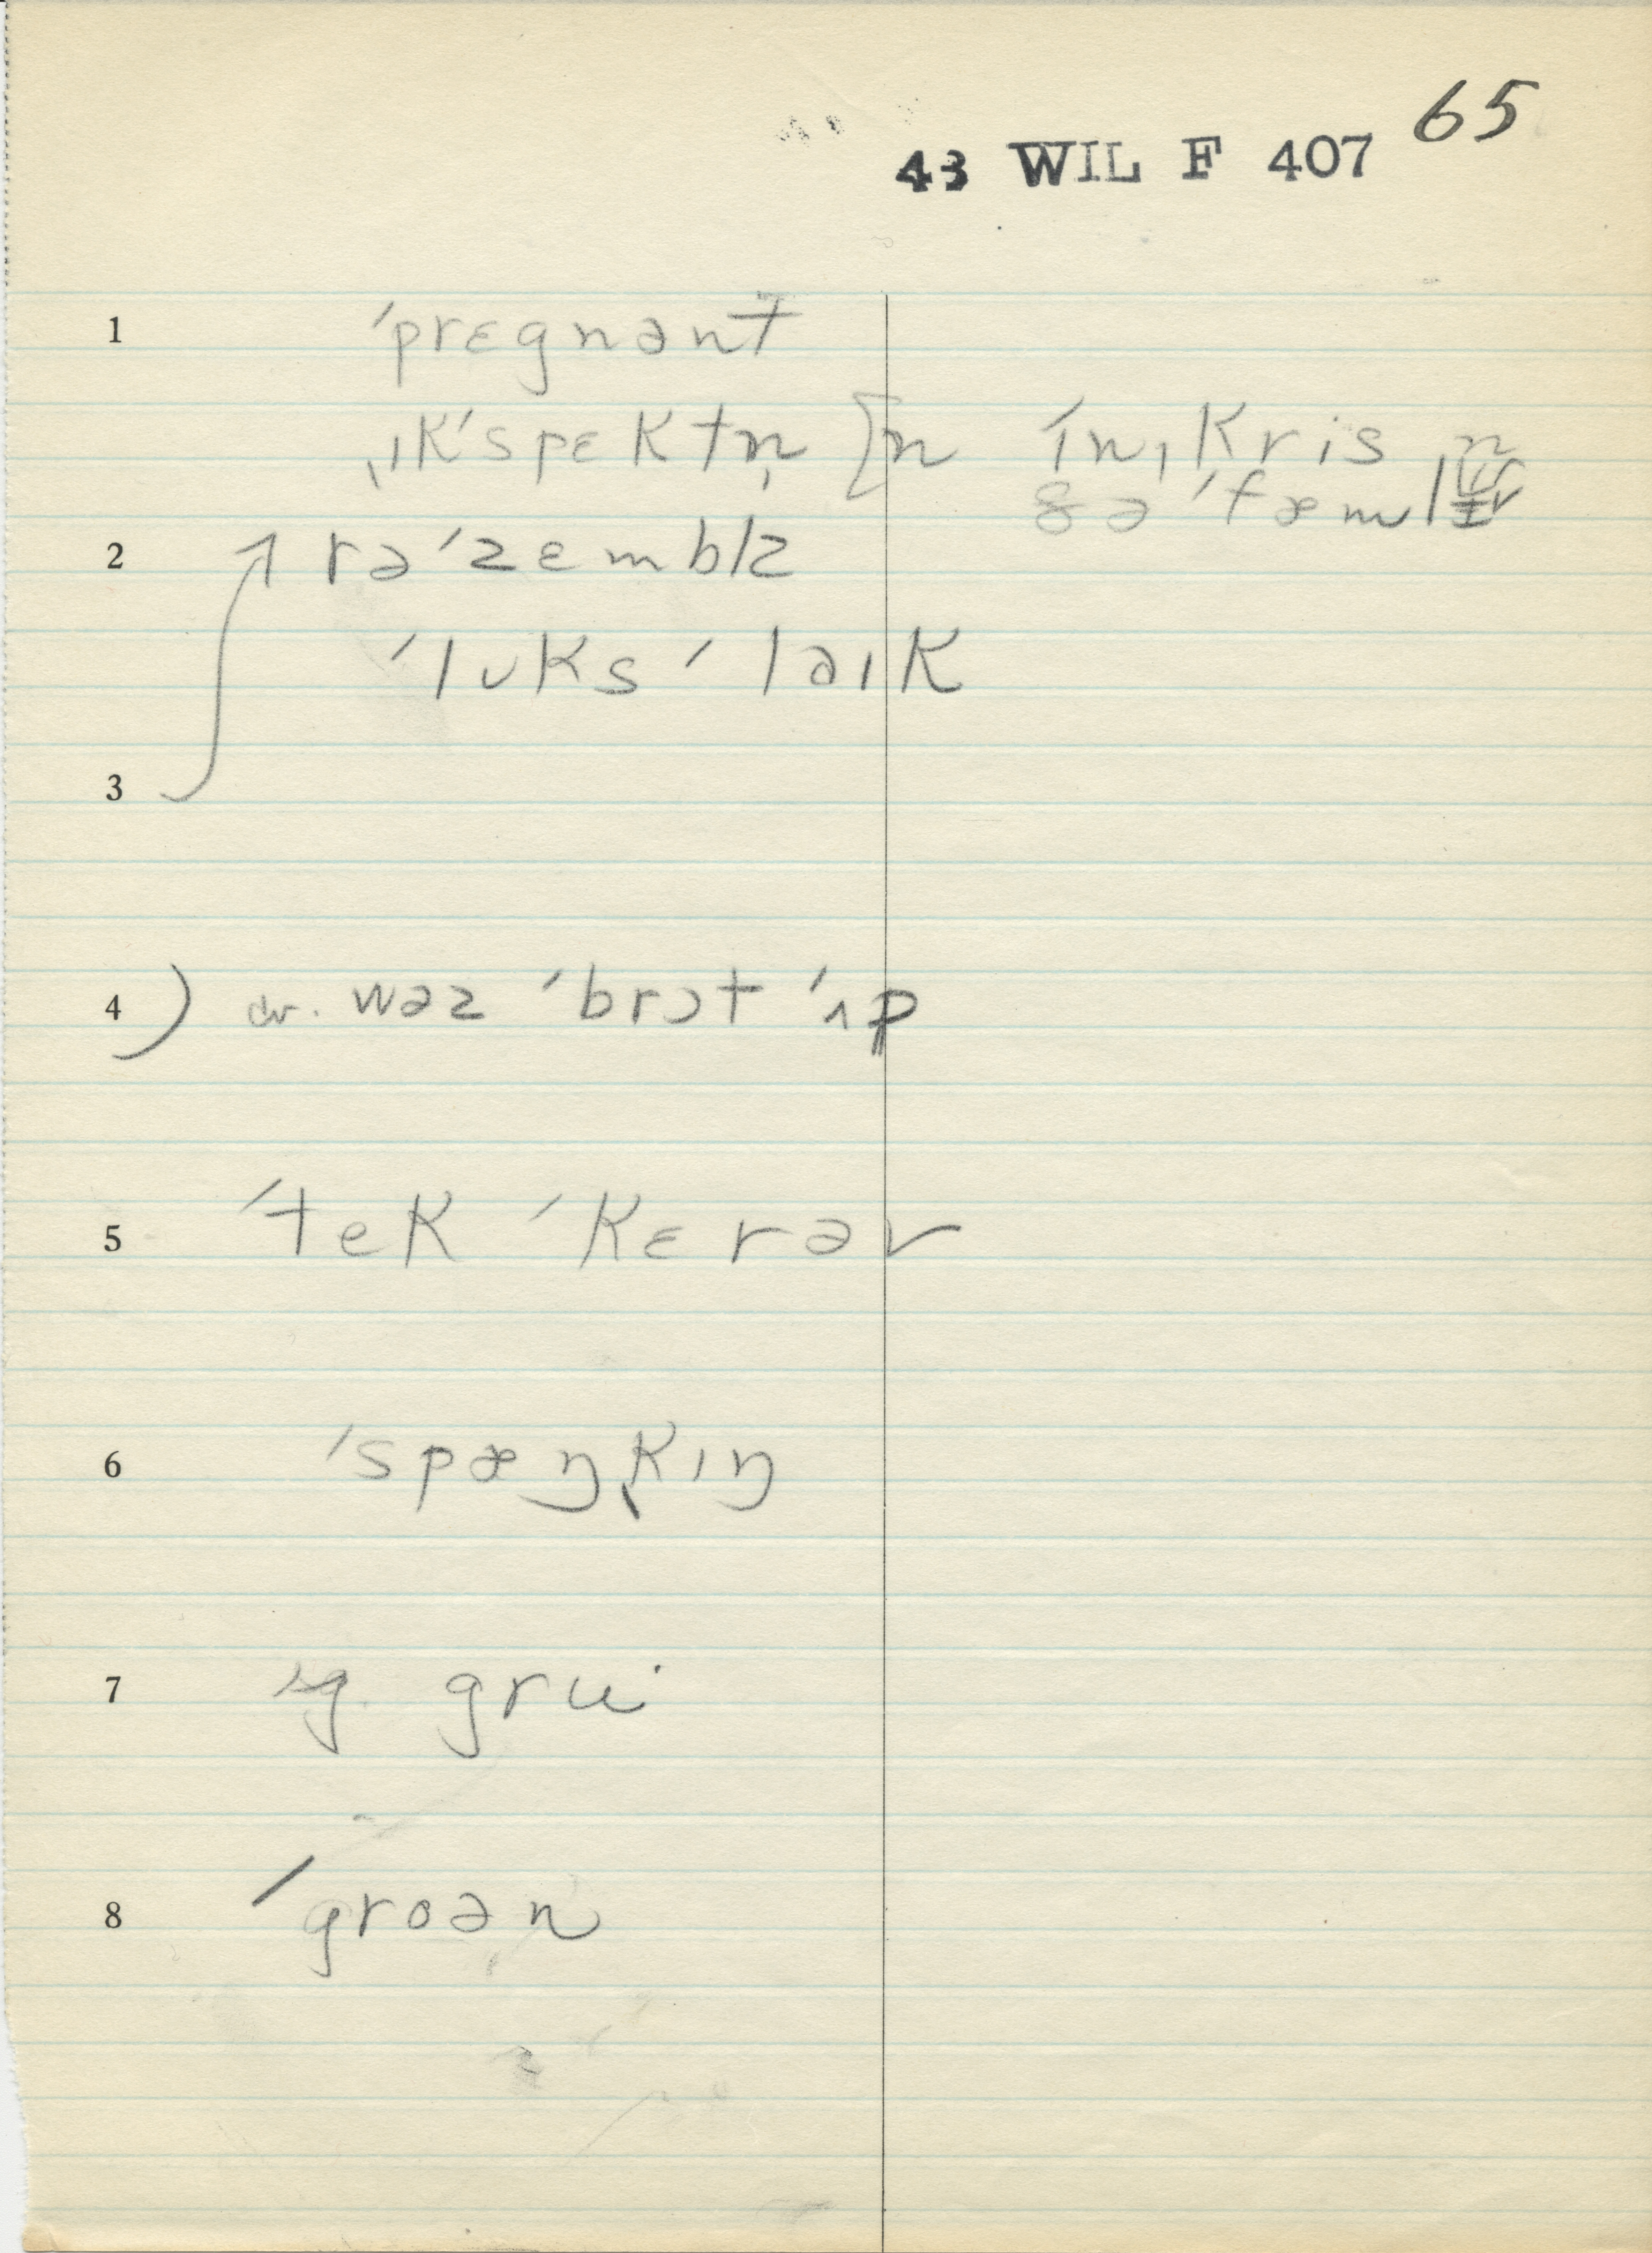 65
43 WIL F 407
1 ˈprɛgnənt
ˌɪkˈspɛktn̩ [n ín ˌkris n
ðə ˈfæml
2 rəˈzɛmblz
ˈlʊks ˈlaɪk
3
4 ) cr. wəz ˈbrɔt ˈʌp
5 ˈtek ˈkɛrəv
6 ˈspæŋkɪŋ
7 sg. gru·
8 ˈgroən